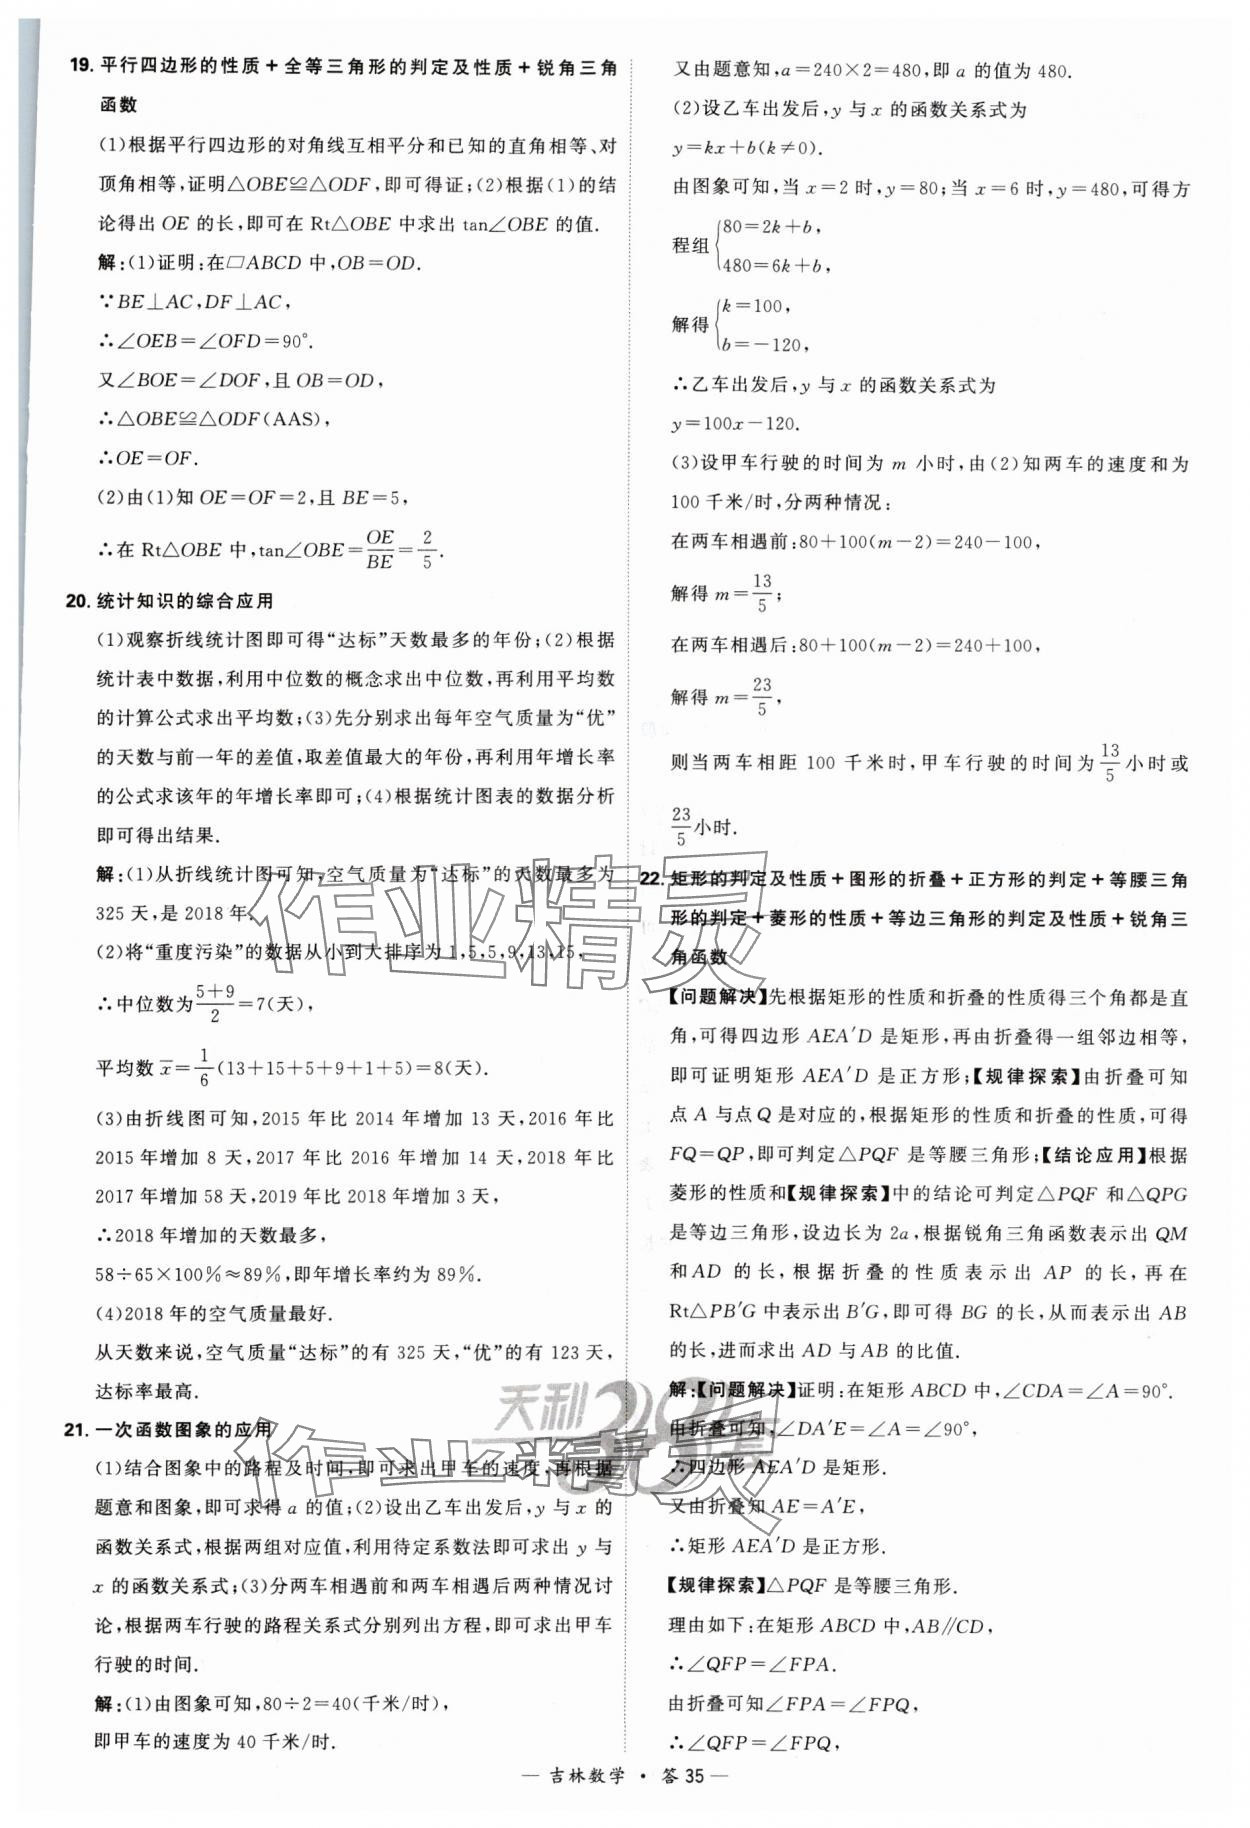 19. 平行四边形的性质＋全等三角形的判定及性质＋锐角三角
函数
(1)根据平行四边形的对角线互相平分和已知的直角相等、对
顶角相等,证明△OBE≌△ODF,即可得证;(2)根据(1)的结
论得出 OE 的长,即可在 Rt△OBE 中求出 tan∠OBE 的值.
解:(1)证明:在▱ABCD 中,OB＝OD.
∵BE⊥AC,DF⊥AC,
∴∠OEB＝∠OFD＝90°.
又∠BOE＝∠DOF,且 OB＝OD,
∴△OBE≌△ODF(AAS),
∴OE＝OF.
(2)由(1)知 OE＝OF＝2,且 BE＝5,
∴在 Rt△OBE 中,tan∠OBE＝OE/BE＝2/5.
20. 统计知识的综合应用
(1)观察折线统计图即可得“达标”天数最多的年份;(2)根据
统计表中数据,利用中位数的概念求出中位数,再利用平均数
的计算公式求出平均数;(3)先分别求出每年空气质量为“优”
的天数与前一年的差值,取差值最大的年份,再利用年增长率
的公式求该年的年增长率即可;(4)根据统计图表的数据分析
即可得出结果.
解:(1)从折线统计图可知,空气质量为“达标”的天数最多为
325 天,是 2018 年.
(2)将“重度污染”的数据从小到大排序为 1,5,5,9,13,15,
∴中位数为(5＋9)/2＝7(天),
平均数 x̄＝1/6(13＋15＋5＋9＋1＋5)＝8(天).
(3)由折线图可知,2015 年比 2014 年增加 13 天,2016 年比
2015 年增加 8 天,2017 年比 2016 年增加 14 天,2018 年比
2017 年增加 58 天,2019 年比 2018 年增加 3 天,
∴2018 年增加的天数最多,
58÷65×100%≈89%,即年增长率约为 89%.
(4)2018 年的空气质量最好.
从天数来说,空气质量“达标”的有 325 天,“优”的有 123 天,
达标率最高.
21. 一次函数图象的应用
(1)结合图象中的路程及时间,即可求出甲车的速度,再根据
题意和图象,即可求得 a 的值;(2)设出乙车出发后,y 与 x 的
函数关系式,根据两组对应值,利用待定系数法即可求出 y 与
x 的函数关系式;(3)分两车相遇前和两车相遇后两种情况讨
论,根据两车行驶的路程关系式分别列出方程,即可求出甲车
行驶的时间.
解:(1)由图象可知,80÷2＝40(千米/时),
即甲车的速度为 40 千米/时.
又由题意知,a＝240×2＝480,即 a 的值为 480.
(2)设乙车出发后,y 与 x 的函数关系式为
y＝kx＋b(k≠0).
由图象可知,当 x＝2 时,y＝80;当 x＝6 时,y＝480,可得方
程组{80＝2k＋b,
480＝6k＋b,
解得{k＝100,
b＝－120,
∴乙车出发后,y 与 x 的函数关系式为
y＝100x－120.
(3)设甲车行驶的时间为 m 小时,由(2)知两车的速度和为
100 千米/时,分两种情况:
在两车相遇前:80＋100(m－2)＝240－100,
解得 m＝13/5;
在两车相遇后:80＋100(m－2)＝240＋100,
解得 m＝23/5,
则当两车相距 100 千米时,甲车行驶的时间为13/5小时或
23/5小时.
22. 矩形的判定及性质＋图形的折叠＋正方形的判定＋等腰三角
形的判定＋菱形的性质＋等边三角形的判定及性质＋锐角三
角函数
【问题解决】先根据矩形的性质和折叠的性质得三个角都是直
角,可得四边形 AEA′D 是矩形,再由折叠得一组邻边相等,
即可证明矩形 AEA′D 是正方形;【规律探索】由折叠可知
点 A 与点 Q 是对应的,根据矩形的性质和折叠的性质,可得
FQ＝QP,即可判定△PQF 是等腰三角形;【结论应用】根据
菱形的性质和【规律探索】中的结论可判定△PQF 和△QPG
是等边三角形,设边长为 2a,根据锐角三角函数表示出 QM
和AD 的长,根据折叠的性质表示出 AP 的长,再在
Rt△PB′G 中表示出 B′G,即可得 BG 的长,从而表示出 AB
的长,进而求出 AD 与 AB 的比值.
解:【问题解决】证明:在矩形 ABCD 中,∠CDA＝∠A＝90°.
由折叠可知,∠DA′E＝∠A＝∠90°,
∴四边形 AEA′D 是矩形.
又由折叠知 AE＝A′E,
∴矩形 AEA′D 是正方形.
【规律探索】△PQF 是等腰三角形.
理由如下:在矩形 ABCD 中,AB∥CD,
∴∠QFP＝∠FPA.
由折叠可知∠FPA＝∠FPQ,
∴∠QFP＝∠FPQ,
— 吉林数学 · 答 35 —
作业精灵
天利38套
作业精灵